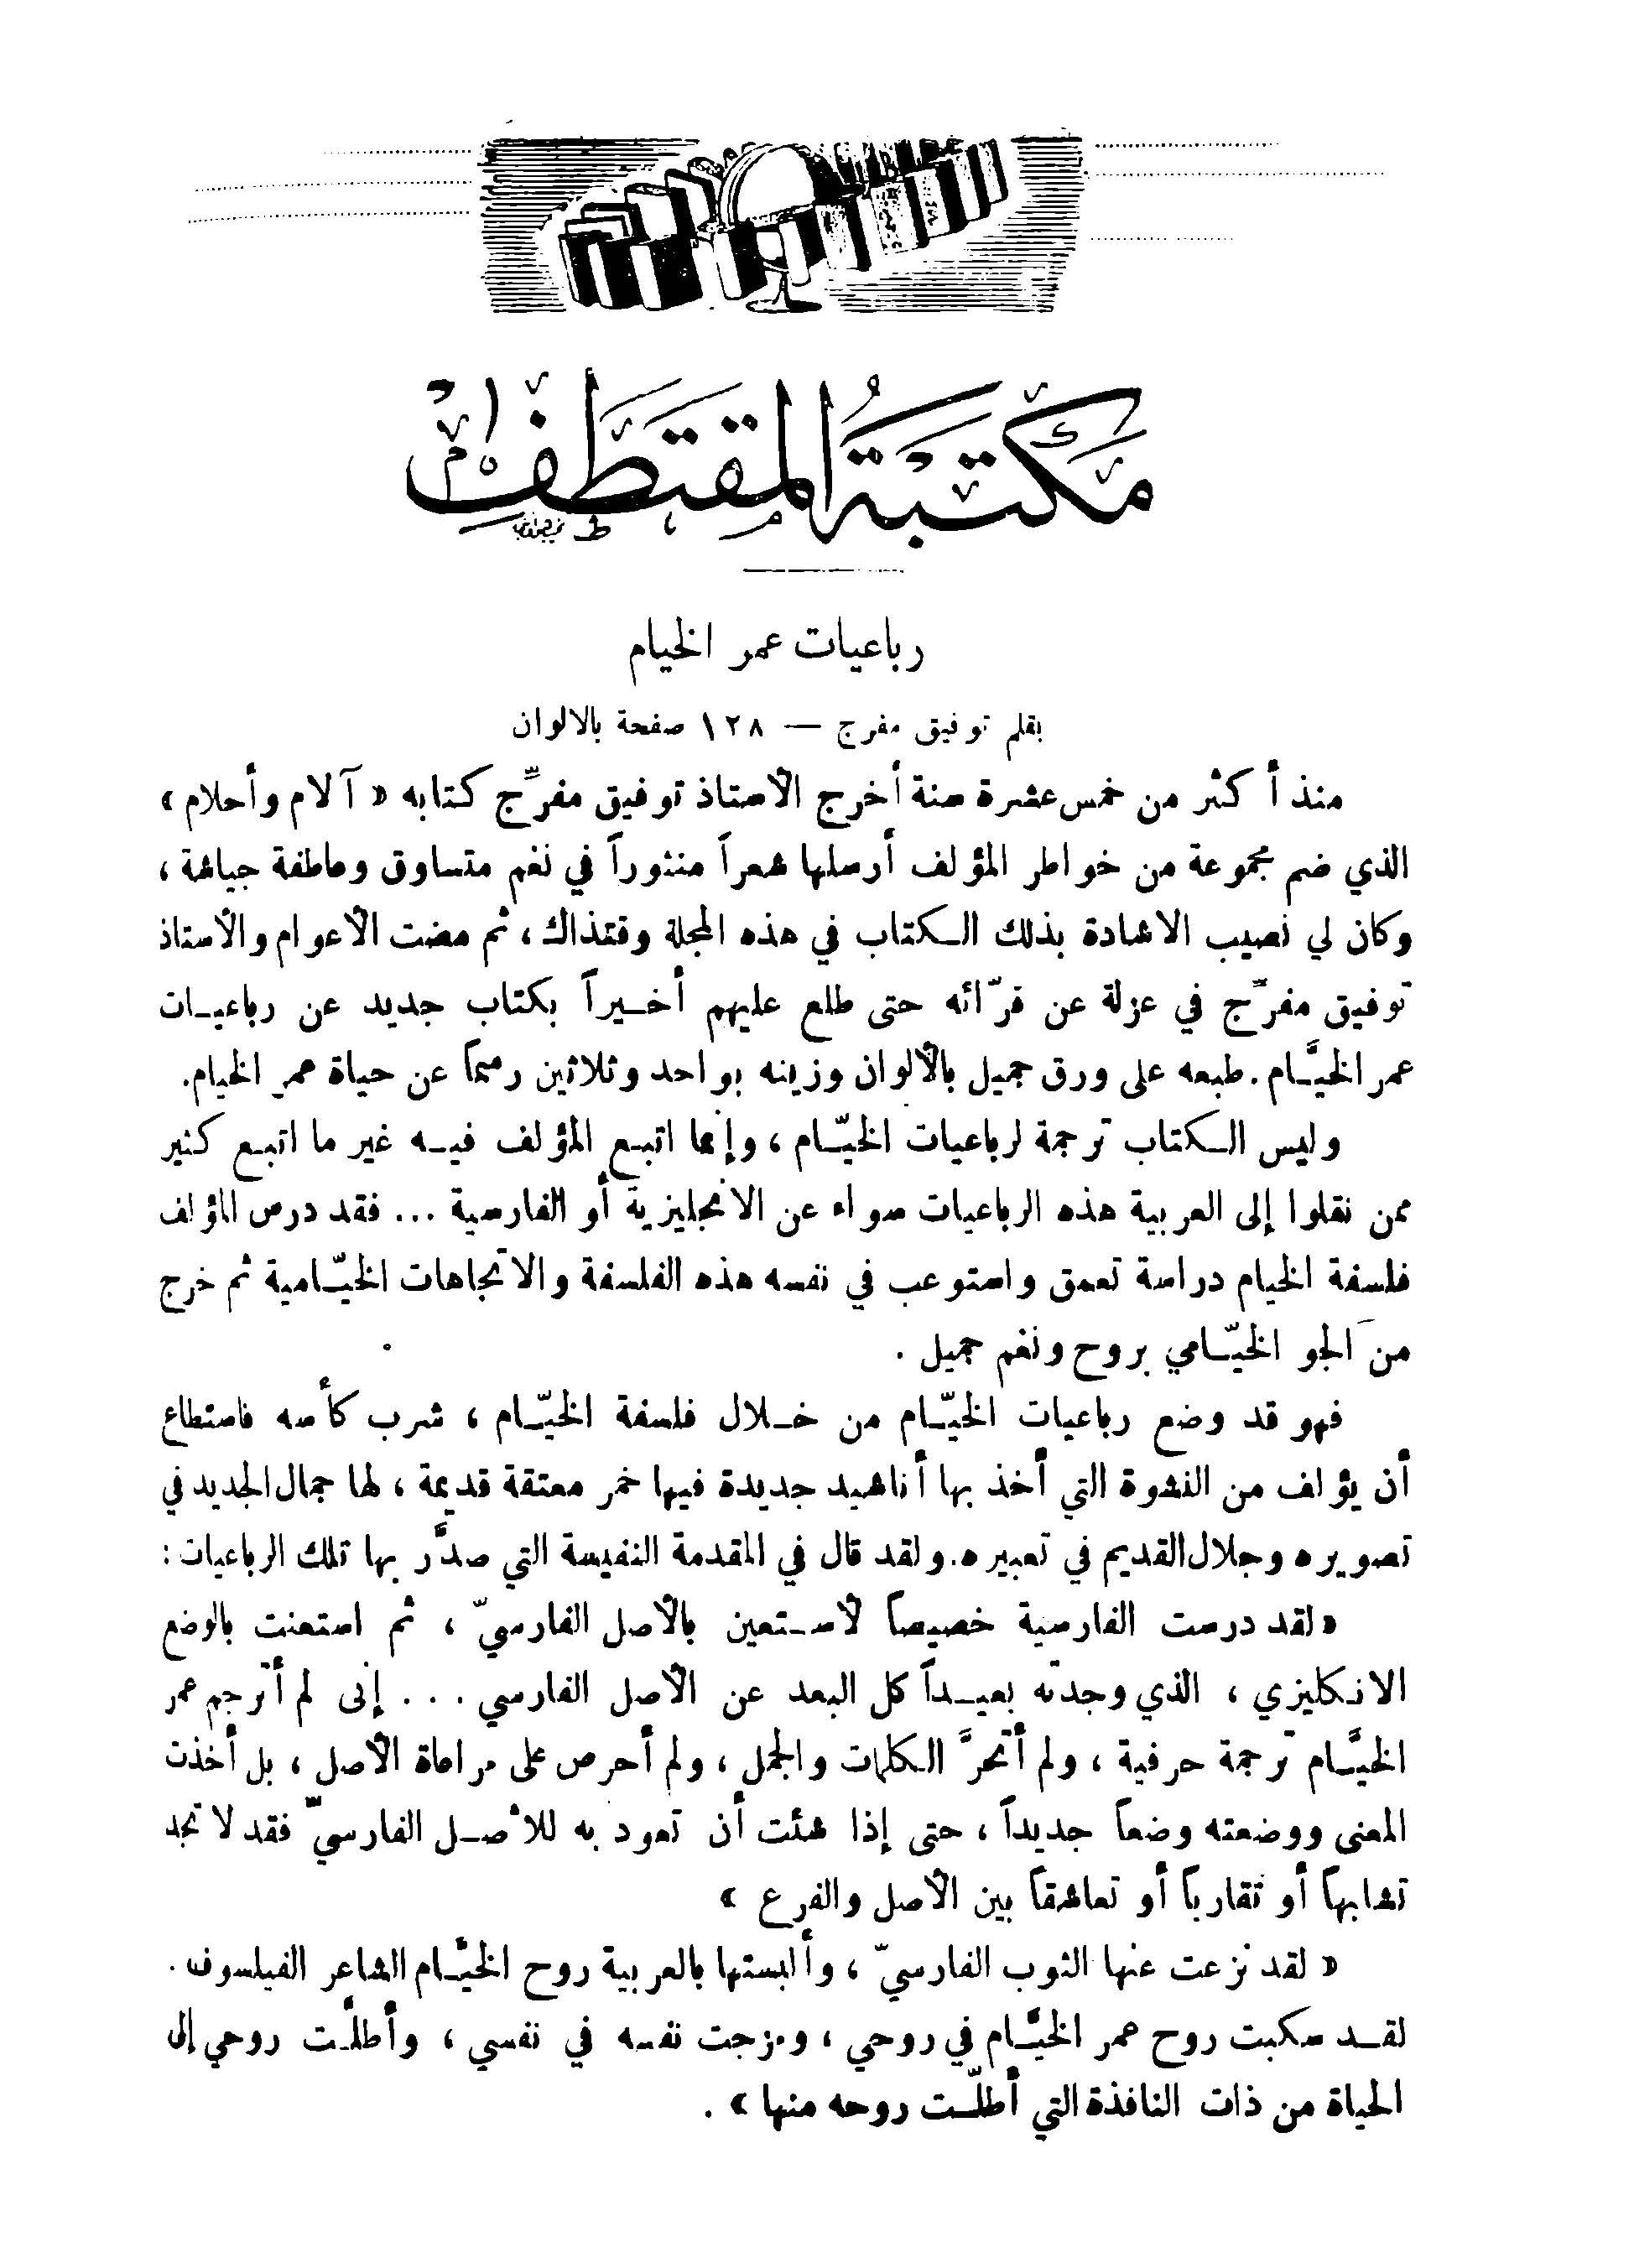 مكتبة المقتطف
رباعيات عمر الخيام
بقلم توفيق مفرج — ١٢٨ صفحة بالالوان
منذ أكثر من خمس عشرة سنة أخرج الأستاذ توفيق مفرِّج كتابه « آلام وأحلام »
الذي ضم مجموعة من خواطر المؤلف أرسلها شعراً منثوراً في نغم متساوق وعاطفة جياشة ،
وكان لي نصيب الاشادة بذلك الكتاب في هذه المجلة وقتذاك ، ثم مضت الأعوام والأستاذ
توفيق مفرِّج في عزلة عن قرّائه حتى طلع عليهم أخيراً بكتاب جديد عن رباعيات
عمر الخيَّام . طبعه على ورق جميل بالألوان وزينه بواحد وثلاثين رسماً عن حياة عمر الخيام.
وليس الكتاب ترجمة لرباعيات الخيّام ، وإنما اتبع المؤلف فيه غير ما اتبع كثير
ممن نقلوا إلى العربية هذه الرباعيات سواء عن الانجليزية أو الفارسية ... فقد درس المؤلف
فلسفة الخيام دراسة تعمق واستوعب في نفسه هذه الفلسفة والاتجاهات الخيّامية ثم خرج
من الجو الخيّامي بروح ونغم جميل .
فهو قد وضع رباعيات الخيّام من خلال فلسفة الخيّام ، شرب كأسه فاستطاع
أن يؤلف من النشوة التي أخذ بها أناشيد جديدة فيها خمر معتقة قديمة ، لها جمال الجديد في
تصويره وجلال القديم في تعبيره . ولقد قال في المقدمة النفيسة التي صدَّر بها تلك الرباعيات :
« لقد درست الفارسية خصيصاً لأستعين بالأصل الفارسيّ ، ثم استعنت بالوضع
الانكليزي ، الذي وجدته بعيداً كل البعد عن الأصل الفارسي ... إنى لم أترجم عمر
الخيَّام ترجمة حرفية ، ولم أتحرَّ الكلمات والجمل ، ولم أحرص على مراعاة الأصل ، بل أخذت
المعنى ووضعته وضعاً جديداً ، حتى إذا شئت أن تعود به للأصل الفارسيّ فقد لا تجد
تشابهاً أو تقارباً أو تعاشقاً بين الأصل والفرع »
« لقد نزعت عنها الثوب الفارسيّ ، وألبستها بالعربية روح الخيَّام الشاعر الفيلسوف .
لقد سكبت روح عمر الخيَّام في روحي ، ومزجت نفسه في نفسي ، وأطلَّت روحي إلى
الحياة من ذات النافذة التي أطلّت روحه منها » .